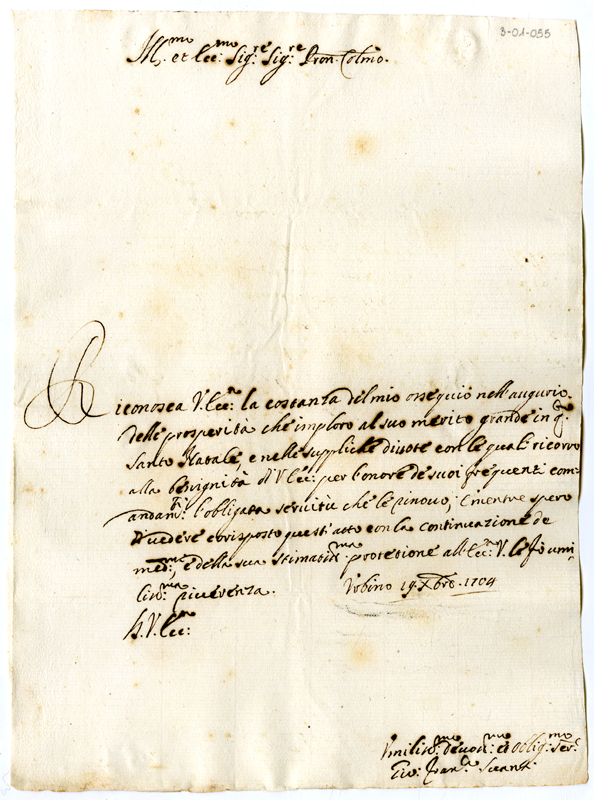 3-01-055
Ill.mo et Ecc.mo Sig.re Sig.re Pron. Colmo.
Riconosca V. Ecc.a la costanza del mio ossequio nell'augurio
delle prosperità che imploro al suo merito grande in q.to
Santo Natale, e nelle suppliche divote con le quali ricorro
alla benignità di V. Ecc.a per l'onore de suoi frequenti com=
andam.ti l'obligata servitù che le rinovo; e mentre spero
di vedere corrisposto quest'atto con la continuazione de
med.mi, e della sua stimatis.ma protezione all'Ecc.a V. le fo umi
lis.ma riverenza. Urbino 19 Xbre. 1704
D. V. Ecc.a
Umilis.mo devot.mo et Oblig.mo Ser.e
Gio. Fran.co